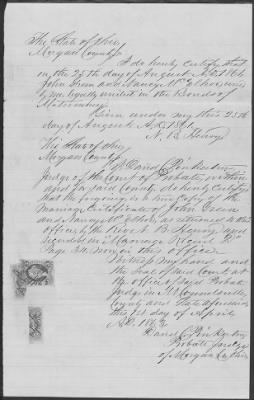 The State of Ohio
Morgan County
I do hereby Certify that
on the 25th day of August A.D. 1861
John Green and Nancy McElhose were
by me legally united in the Bonds of
Matrimony
Given under my this 25th
day of August A.D. 1861
N. B. Henry
The State of Ohio
Morgan County
I David C. Pinkerton
Judge of the Court of Probate within
and for said County do hereby Certify
that the foregoing is a true Copy of the
marriage Certificate of John Green
and Nancy McElhose as returned to this
office by the Rev N. B. Henry and
recorded in Marriage Record
Page 34 now in this office
Witness my hand and
the Seal of said Court at
my office of said Probate
Judge in McConnelsville
County and State aforesaid
this 1st day of April
A.D. 186
David C. Pinkerton
Probate Judge
of Morgan Co Ohio